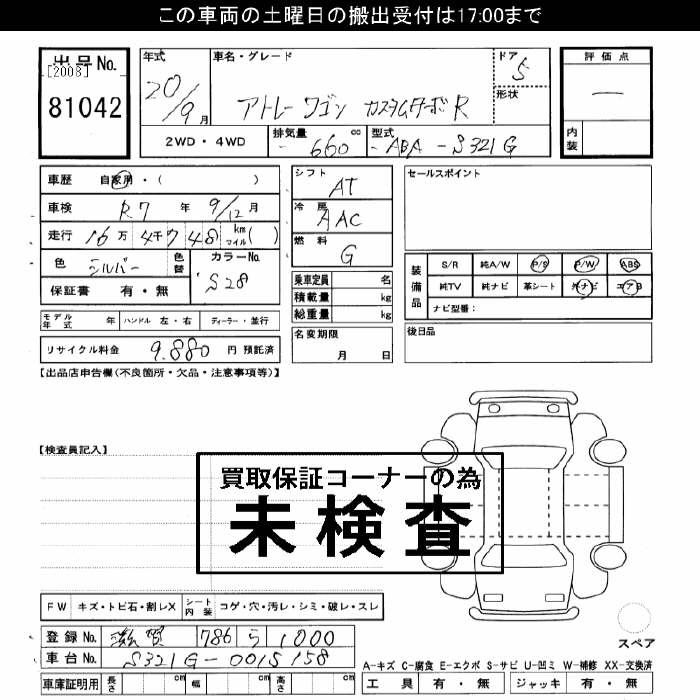 この車両の土曜日の搬出受付は17:00まで
出品No.
[2008]
81042
年式
20/9月
車名・グレード
アトレーワゴン カスタムターボR
ドア
5
形状
評価点
—
内装
2WD・4WD
排気量
660 cc
型式
ABA - S321G
車歴 自家用・( )
車検 R7年 9/12月
走行 16万 4千 748 km マイル( )
色 シルバー 色替
カラーNo.
S28
保証書 有・無
シフト
AT
冷房
AAC
燃料
G
乗車定員 名
積載量 kg
総重量 kg
セールスポイント
装備品
S/R 純A/W P/S P/W ABS
純TV 純ナビ 革シート 外ナビ エアB
ナビ型番:
モデル年式 年 ハンドル 左・右 ディーラー・並行
名変期限
月 日
後日品
リサイクル料金 9,880 円 預託済
【出品店申告欄(不良箇所・欠品・注意事項等)】
【検査員記入】
買取保証コーナーの為
未検査
FW キズ・トビ石・割レX シート内装 コゲ・穴・汚レ・シミ・破レ・スレ
スペア
登録No. 滋賀 786 ら 1000
車台No. S321G-0015158
A-キズ C-腐食 E-エクボ S-サビ U-凹ミ W-補修 XX-交換済
車庫証明用 長さ cm 幅 cm 高さ cm
工具 有・無 ジャッキ 有・無